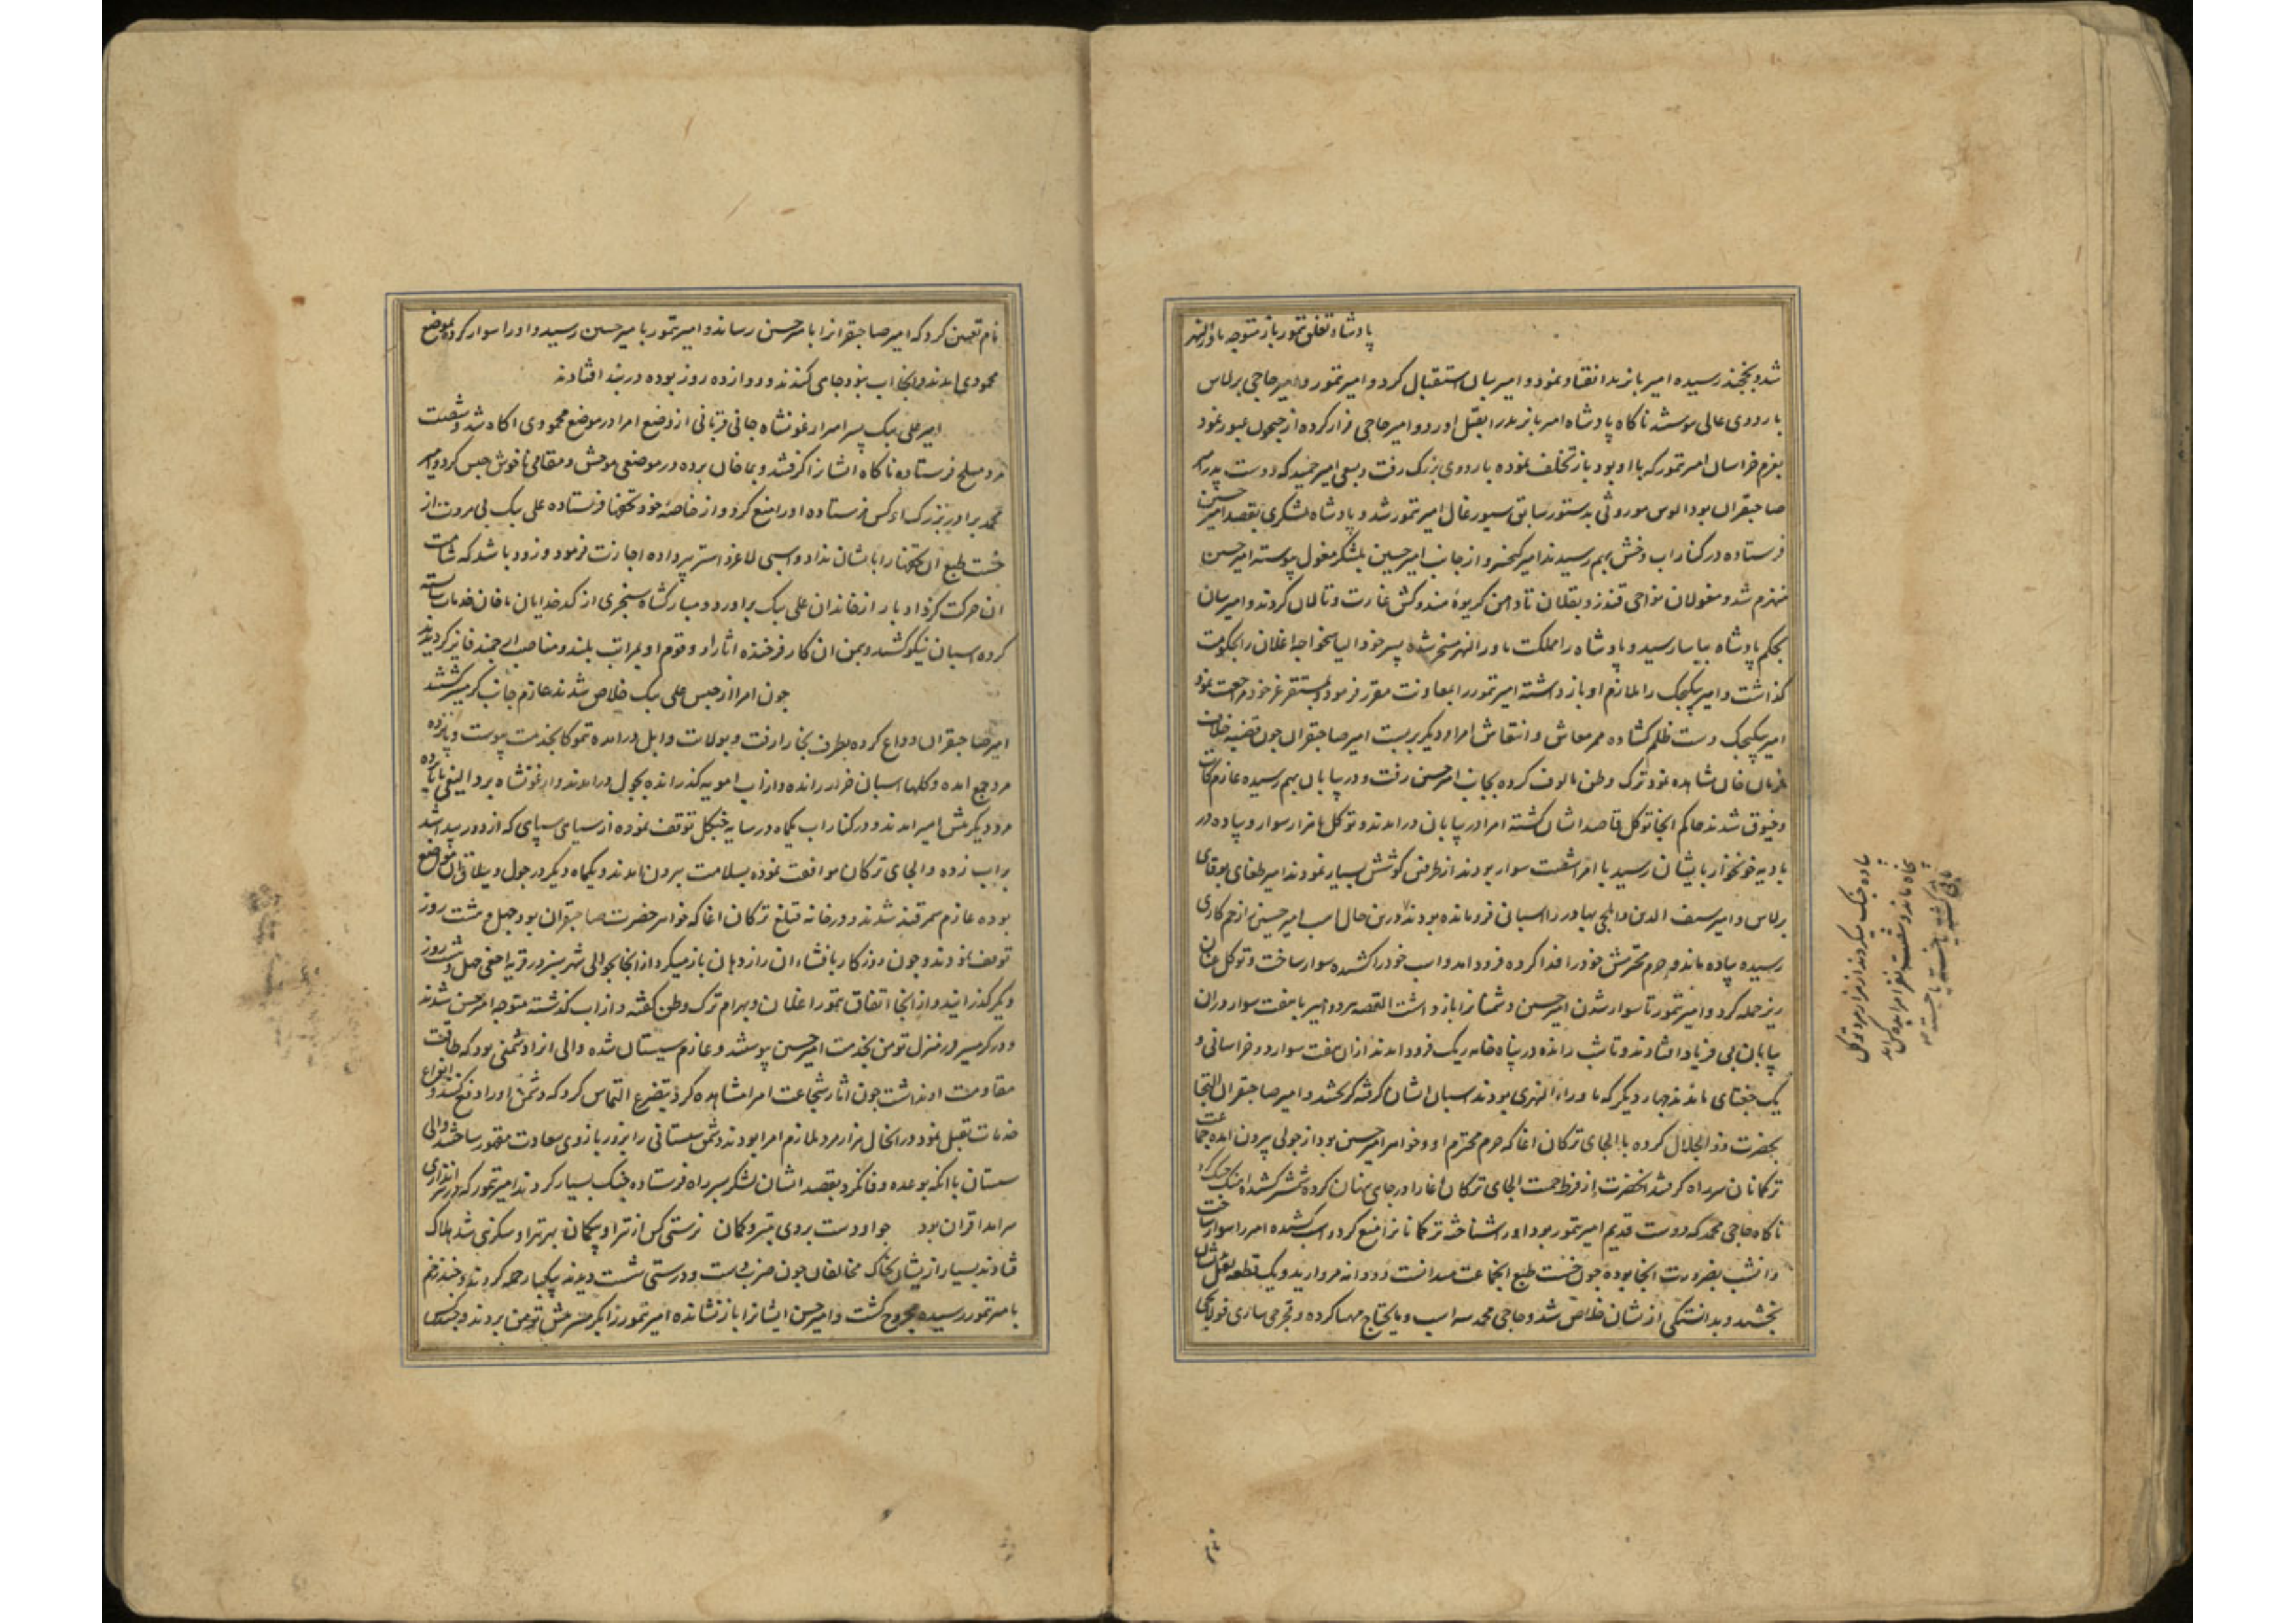 پادشاه تغلق تمور باز متوجه ماورالنهر
شد و بخجند رسیده امیر بایزید انقیاد نمود و امیر بیان استقبال کرد و امیر تمور و امیر حاجی برلاس
باردوی عالی پیوستند ناکاه پادشاه امیر بایزید را بقتل اورد و امیر حاجی فرار کرده از جیحون عبور نمود
بعزم خراسان امیر تمور که با او بود باز تخلف نموده باردوی بزرک رفت و بسعی امیر حمید که دوست پدر امیر
صاحبقران بود الوس موروثی بدستور سابق سیورغال امیر تمور شد و پادشاه لشکری بقصد امیر حسین
فرستاده در کنار اب وخش بهم رسیدند امیر کیخسرو از جانب امیر حسین بلشکر مغول پیوسته امیر حسین
منهزم شد و مغولان نواحی قندز و بقلان تا دامن کریوهٔ هندوکش غارت و تالان کردند و امیر بیان
بحکم پادشاه بیاسا رسید و پادشاه را مملکت ماورالنهر مسخر شده پسر خود الیاسخواجه اغلان را بحکومت
کذاشت و امیر بیکیجک را ملازم او باز داشته امیر تمور را بمعاونت مقرر فرمود و بمستقر عز خود مراجعت نمود
امیر بیکیجک دست ظلم کشاده ممر معاش و انتعاش امرا و دیکر بربست امیر صاحبقران چون قضیه خلاف
فرمان خان مشاهده نمود ترک وطن مالوف کرده بجانب امیر حسین رفت و در بیابان بهم رسیده عازم کات
و خیوق شدند حاکم انجا توکل قاصد ایشان کشته امرا در بیابان درامدند و توکل با هزار سوار و پیاده در
بادیه خونخوار بایشان رسید با امرا شصت سوار بودند از طرفین کوشش بسیار نمودند امیر طغای بوقای
برلاس و امیر سیف الدین و ایلچی بهادر را اسبان فرومانده بودند و درین حال اسب امیر حسین را زخم کاری
رسیده پیاده ماند و حرم محترمش خود را فدا کرده فرود امد و اسب خود را کشیده سوار ساخت و توکل عنان
ریز حمله کرد و امیر تمور تا سوار شدن امیر حسین دشمنانرا باز داشت القصه هر دو امیر با هفت سوار دران
بیابان بی فریاد افتادند و تا شب رانده در پناه خانه ریک فرود امدند ازان هفت سوار دو خراسانی و
یک جغتای ماندند چهار دیکر که ماوراءالنهری بودند اسبان ایشان کرفته کریختند و امیر صاحبقران التجا
بحضرت ذوالجلال کرده با الجای ترکان اغا که حرم محترم او و خواهر امیر حسین بود از چولی بیرون امده جماعت
ترکمانان سر راه کرفتند انحضرت از فرط حمیت الجای ترکان اغا را در جای پنهان کرده شمشیر کشیده اهنک جنک کرد
ناکاه حاجی محمد که دوست قدیم امیر تمور بود او را شناخته ترکمانانرا منع کرد و اسب کشیده امیر را سوار ساخت
و انشب بضرورت انجا بوده چون خست طبع انجماعت میدانست دو دانه مروارید و یک قطعه لعل بایشان
بخشید و بدانستکی از ایشان خلاص شد و حاجی محمد سه اسب و مایحتاج مهیا کرده و قجرچی ساری قولانچی
پیاده جنک میکردند از هزار مرد توکل
پنجاه ماند و شصت نفر امرا بده کس امد
باقی کشته
نام تعیین کرد که امیر صاحبقرانرا بامیر حسین رساند و امیر تمور بامیر حسین رسید و او را سوار کرده بموضع
محمودی امدند و انجا اب نبود چاهی کندند و دوازده روز بوده در بند افتادند
امیر علی بیک پسر امیر ارغونشاه جانی قربانی از وضع امرا در موضع محمودی اکاه شد و شصت
مرد مسلح فرستاده ناکاه ایشانرا کرفتند و بماخان برده در موضعی موحش و مقامی ناخوش حبس کرد و امیر
محمد برادر بزرک او کس فرستاده او را منع کرد و از خاصهٔ خود تحفها فرستاده علی بیک بی مروت از
خست طبع ان تحفها را بایشان نداد و اسبی لاغر و اشتر پیر داده اجازت فرمود و زود باشد که شامت
ان حرکت کرد ادبار از خاندان علی بیک براورد و مبارکشاه سنجری از کدخدایان ماخان خدمات شایسته
کرده اسبان نیکو کشید و بیمن ان کار فرخنده اثار او و قوم او بمراتب بلند و مناصب ارجمند فایز کردیدند
چون امرا از حبس علی بیک خلاص شدند عازم جانب کرمسیر کشتند
امیر صاحبقران وداع کرده بطرف بخارا رفت و بولات و ایل درامده تموکا بخدمت پیوست و پانزده
مرد جمع امده و کلهای اسبان خرار رانده و از اب امویه کذرانده بچول درامدند و ارغونشاه بردالیغی با پانزده
مرد دیکر پیش امیر امدند و در کنار اب یکماه در سایه جنکل توقف نموده از سیاهی سپاهی که از دور پیدا شد
براب زده و الجای ترکان موافقت نموده بسلامت بیرون امدند و یکماه دیکر در چول و ییلاقی ان موضع
بوده عازم سمرقند شدند و در خانه قتلغ ترکان اغا که خواهر حضرت صاحبقران بود چهل و هشت روز
توقف نمودند و چون روزکار بافشاء ان راز دهان باز میکرد از انجا بحوالی شهر سبز در قریه اجغی چهل و هشت روز
دیکر کذرانید و از انجا اتفاق تمور اغلان و بهرام ترک وطن کفته و از اب کذشته متوجه امیر حسین شدند
و در کرمسیر در منزل تومن بخدمت امیر حسین پیوستند و عازم سیستان شده والی انرا دشمنی بود که طاقت
مقاومت او نداشت چون اثار شجاعت امرا مشاهده کرد بتضرع التماس کرد که دشمن او را دفع کنند و انواع
خدمات تقبل نمود در انحال هزار مرد ملازم امرا بودند دشمن سیستانی را بزور بازوی سعادت مقهور ساختند والی
سیستان با انکه بوعده وفا نکرد بقصد ایشان لشکر بسر راه فرستاده جنک بسیار کردند امیر تمور که در تیراندازی
سرامد اقران بود   چو او دست بردی بتیر و کمان   نرستی کس از تیر او بیکمان   بهر تیر او سکزیی شد هلاک
فتادند بسیار از یشان بخاک   مخالفان چون ضرب دست و درستی شست دیدند بیکبار حمله کردند و چند زخم
بامیر تمور رسیده مجروح کشت و امیر حسین ایشانرا باز نشانده امیر تمور را بکرمسیر پیش تومن بردند و